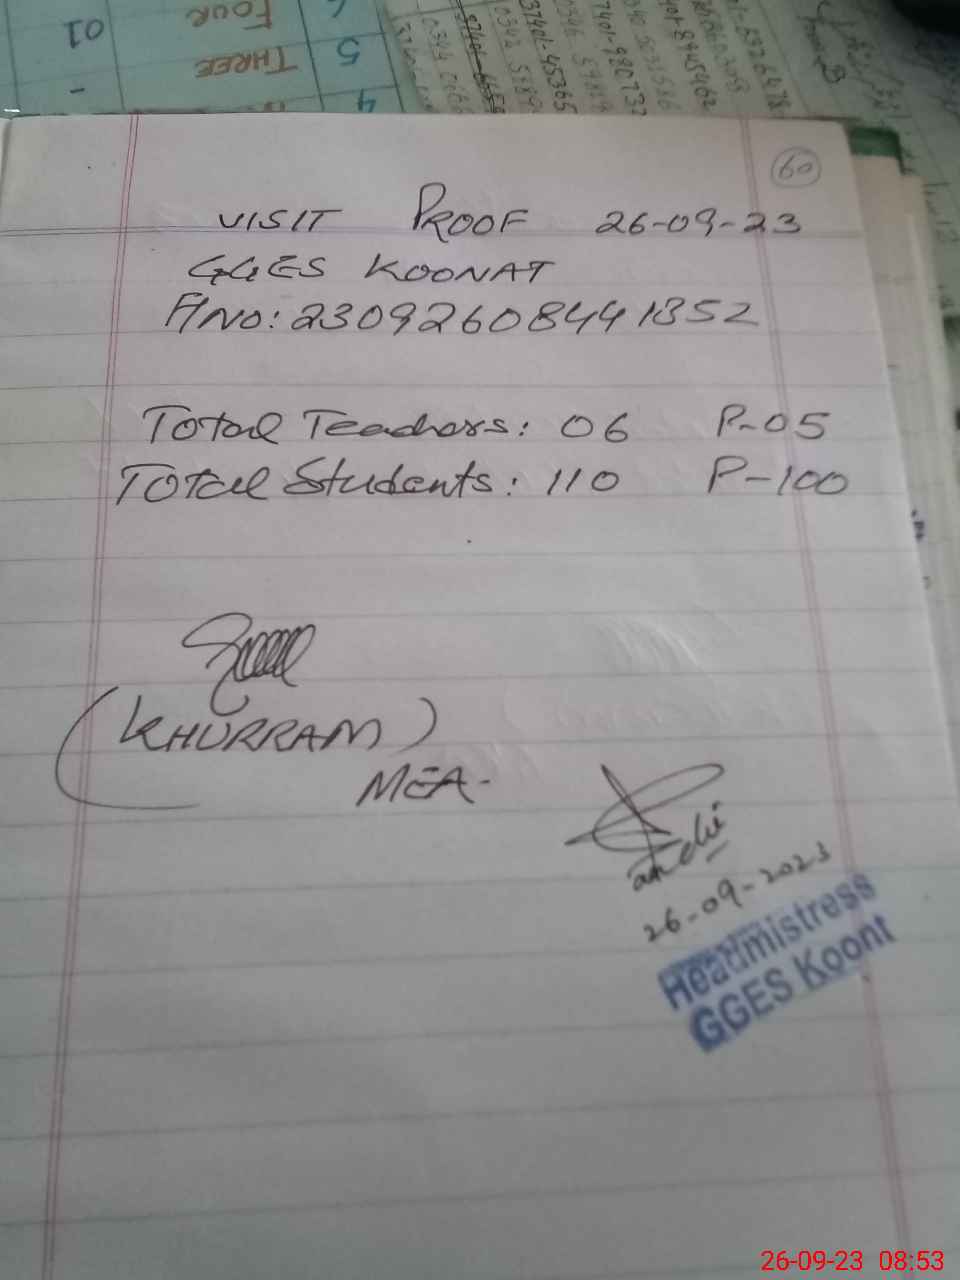 01
FOUR
THREE
5
4
60
VISIT PROOF 26-09-23
GGES KOONAT
A/NO: 230926084441352
Total Teachers: 06 P-05
Total Students: 110 P-100
(KHURRAM)
MEA-
26-09-2023
Headmistress
GGES Koont
26-09-23 08:53